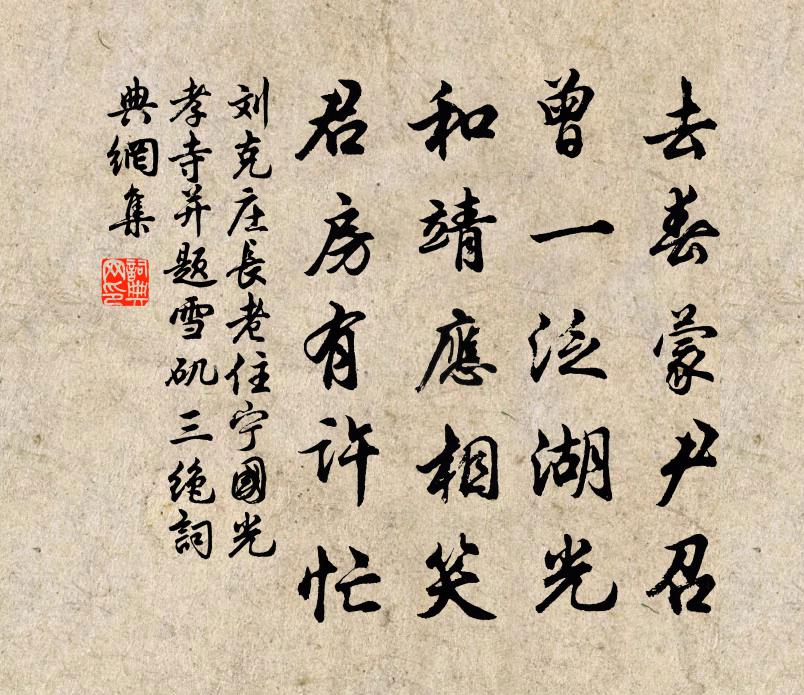 去春蒙尹召
曾一泛湖光
和靖應相笑
君房有許忙
刘克庄長老住宁國光
孝寺并题雪矶三绝詞
典網集
詞典
网印